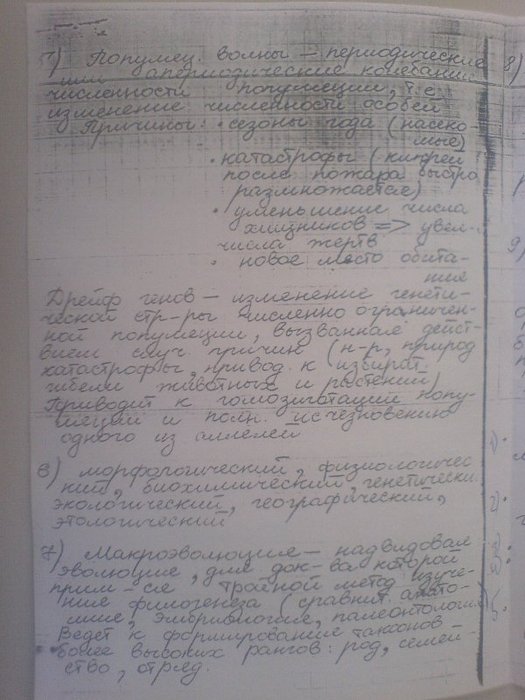 5) Популяц. волны – периодические
или апериодические колебания
численности популяции, т.е.
изменение численности особей
Причины: • сезоны года (насеко-
мые)
• катастрофы (кипрей
после пожара быстро
размножается)
• уменьшение числа
хищников => увел.
числа жертв
• новое место обита-
ния
Дрейф генов – изменение генети-
ческой стр-ры численно ограничен-
ной популяции, вызванная дейст-
вием случ. причин (н-р, природ.
катастрофы, привод. к избират.
гибели животных и растений)
Приводит к гомозиготации попу-
ляции и полн. исчезновению
одного из аллелей
6) морфологический, физиологичес
кий, биохимический, генетически.
экологический, географический,
этологический
7) Макроэволюция – надвидовая
эволюция, для док-ва которой
прим-ся тройной метод изуче-
ния филогенеза (сравнит. анато-
мия, эмбриология, палеонтология
Ведет к формирование таксонов
более высоких рангов: род, семей-
ство, отряд.
8)
9)